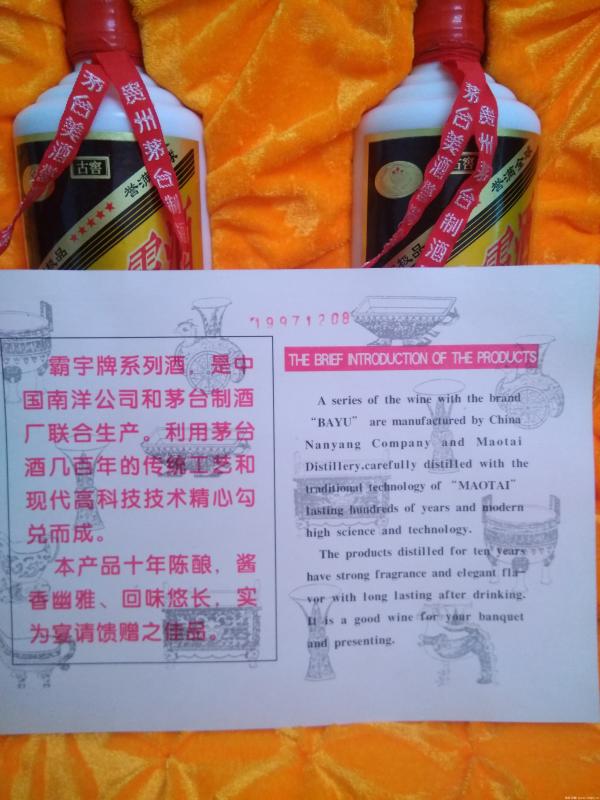 茅台美酒
贵州茅台制
古窖
茅台美酒
贵州茅台制酒
古窖
19971208
霸宇牌系列酒，是中
国南洋公司和茅台制酒
厂联合生产。利用茅台
酒几百年的传统工艺和
现代高科技技术精心勾
兑而成。
本产品十年陈酿，酱
香幽雅、回味悠长，实
为宴请馈赠之佳品。
THE BRIEF INTRODUCTION OF THE PRODUCTS
A series of the wine with the brand
“BAYU” are manufactured by China
Nanyang Company and Maotai
Distillery.carefully distilled with the
traditional technology of “MAOTAI”
lasting hundreds of years and modern
high science and technology.
The products distilled for ten years
have strong fragrance and elegant fla-
vor with long lasting after drinking.
It is a good wine for your banquet
and presenting.